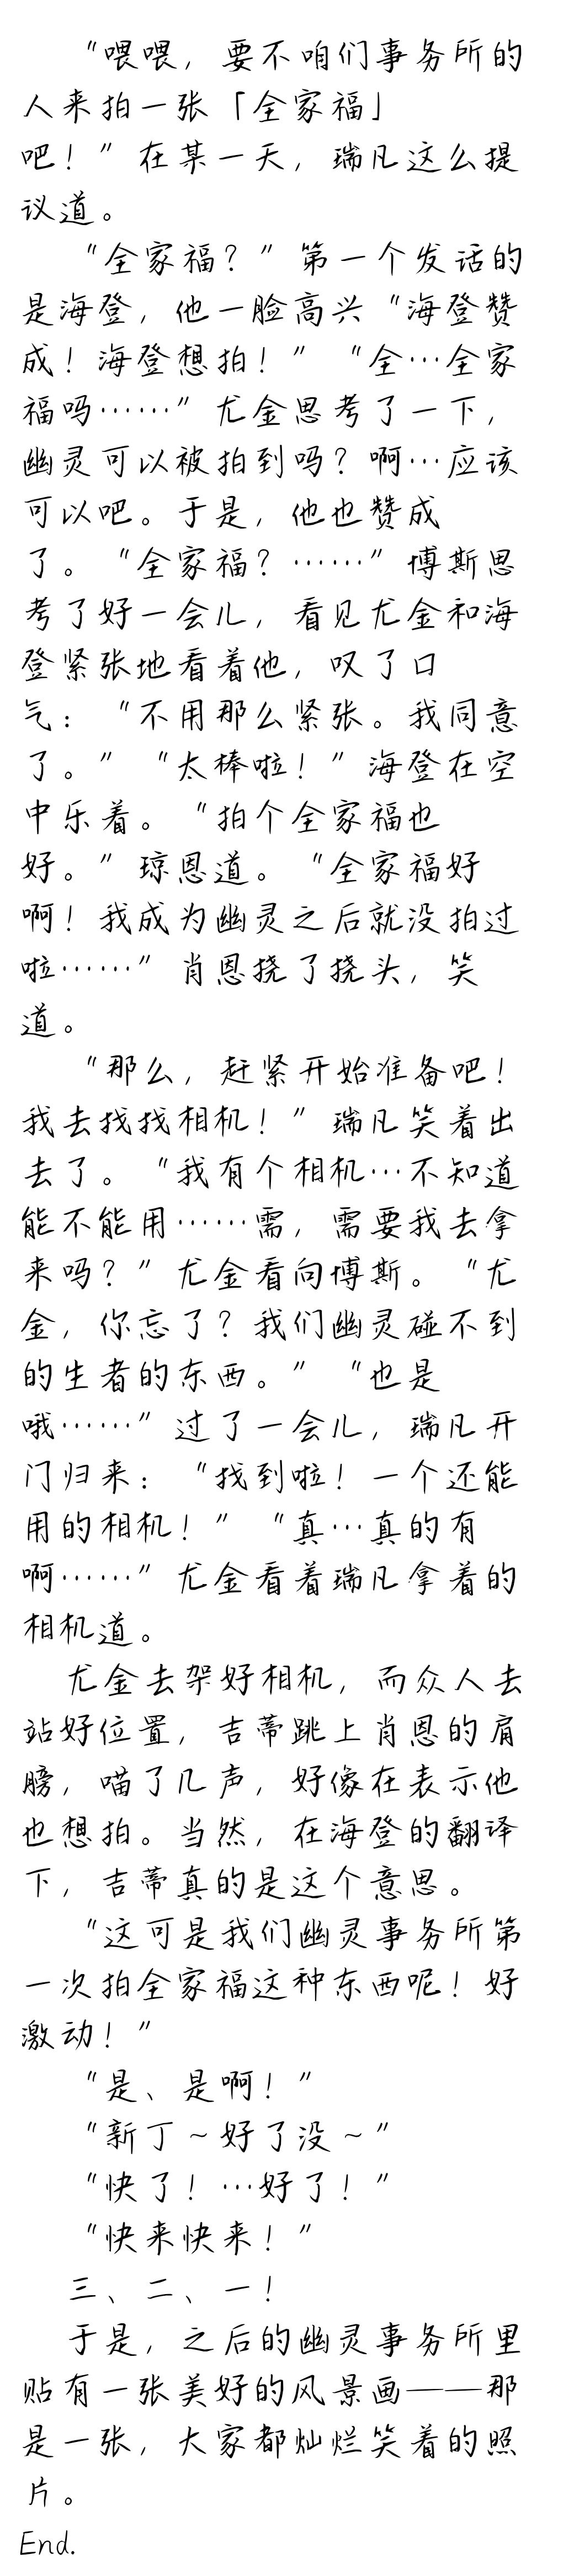 “喂喂，要不咱们事务所的
人来拍一张「全家福」
吧！”在某一天，瑞凡这么提
议道。
“全家福？”第一个发话的
是海登，他一脸高兴“海登赞
成！海登想拍！”“全…全家
福吗……”尤金思考了一下，
幽灵可以被拍到吗？啊…应该
可以吧。于是，他也赞成
了。“全家福？……”博斯思
考了好一会儿，看见尤金和海
登紧张地看着他，叹了口
气：“不用那么紧张。我同意
了。”“太棒啦！”海登在空
中乐着。“拍个全家福也
好。”琼恩道。“全家福好
啊！我成为幽灵之后就没拍过
啦……”肖恩挠了挠头，笑
道。
“那么，赶紧开始准备吧！
我去找找相机！”瑞凡笑着出
去了。“我有个相机…不知道
能不能用……需，需要我去拿
来吗？”尤金看向博斯。“尤
金，你忘了？我们幽灵碰不到
的生者的东西。”“也是
哦……”过了一会儿，瑞凡开
门归来：“找到啦！一个还能
用的相机！”“真…真的有
啊……”尤金看着瑞凡拿着的
相机道。
尤金去架好相机，而众人去
站好位置，吉蒂跳上肖恩的肩
膀，喵了几声，好像在表示他
也想拍。当然，在海登的翻译
下，吉蒂真的是这个意思。
“这可是我们幽灵事务所第
一次拍全家福这种东西呢！好
激动！”
“是、是啊！”
“新丁～好了没～”
“快了！…好了！”
“快来快来！”
三、二、一！
于是，之后的幽灵事务所里
贴有一张美好的风景画——那
是一张，大家都灿烂笑着的照
片。
End.